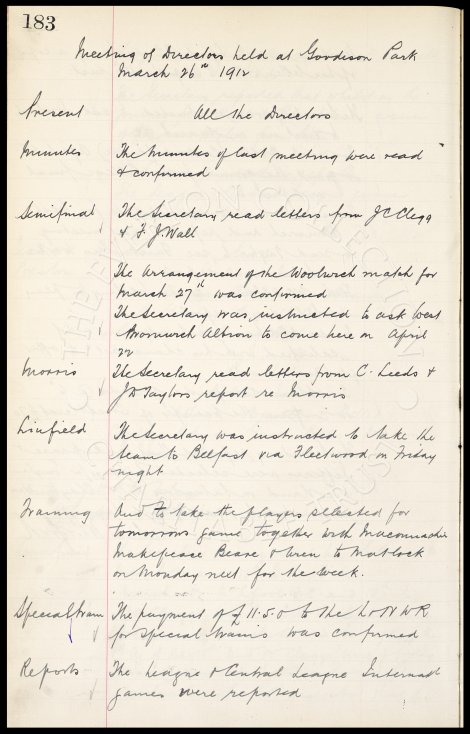 183
Meeting of Directors held at Goodison Park
March 26th 1912
Present All the Directors
Minutes The Minutes of last meeting were read
& confirmed
Semifinal The Secretary read letters from J C Clegg
& F. J. Wall
The arrangement of the Woolwich match for
March 27th was confirmed
The Secretary was instructed to ask West
Bromwich Albion to come here on April
22
Morris The Secretary read letters from C. Leeds &
Taylors report re Morris
Linfield The Secretary was instructed to take the
team to Belfast via Fleetwood on Friday
night
Training And to take the players selected for
tomorrows game together with Maconnachie
Makepeace Beare & Uren to Matlock
on Monday next for the week.
Special train The payment of £11.5.0 to the L & N W R
for special trains was confirmed
Reports The League & Central League Internatl
games were reported